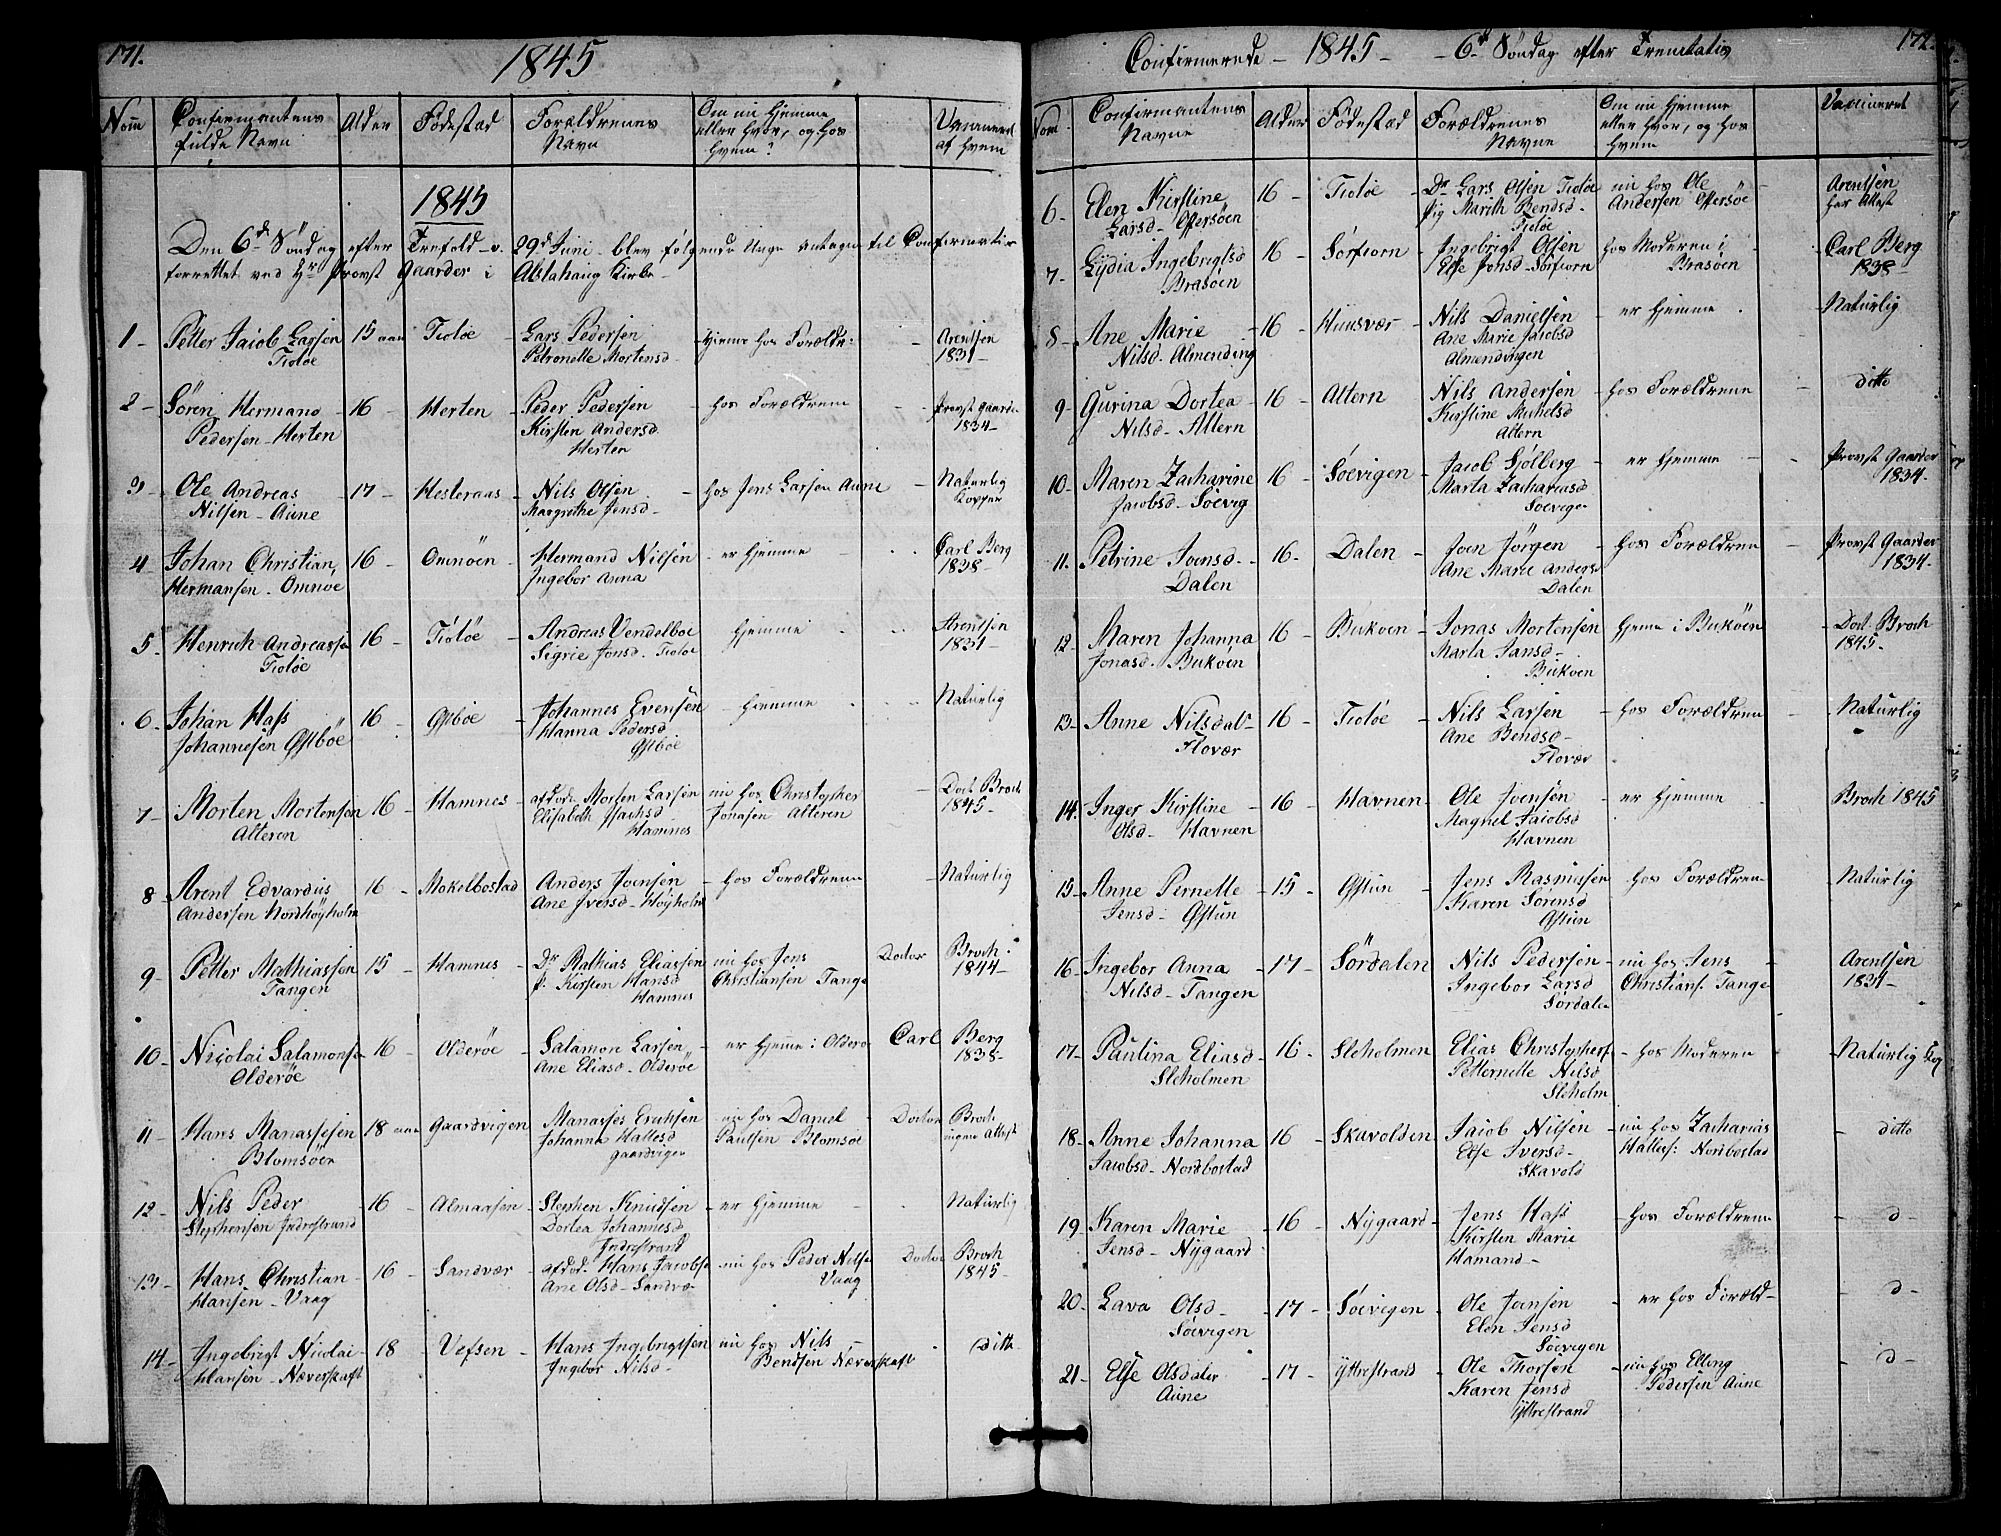 171.
1845
Nom
Confirmantens
fulde Navn
Alder
Fødestad
Forældrenes
Navn
Om nu Hjemme
eller hvor, og hos
hvem?
Vaccineret
af hvem
1845
Den 6de Söndag efter Trefold. v. 29de Juni blev følgende Unge antagne til Confirmation
forrettet ved Hr Provst Gaarder i Alstahaug Kirke
1 - Petter Jacob Larsen - 15 aar - Tioløe - Lars Pedersen - hjeme hos Foræld: - Arentsen
Tioløe Petronelle Mortensd - 1831 -
2 - Sören Hermand - 16 - Herten - Peder Pedersen - hos Forældrene - Provst Gaarder
Pedersen - Herten Kirsten Andersd 1834 -
Herten
3 - Ole Andreas - 17 - Hesteraas - Nils Olsen - hos Jens Larsen Aune - Naturlig
Nilsen - Aune Margrethe Jensd - Kopper
4 - Johan Christian 16 - Omnöen - Hermand Nilsen - er hjemme - Carl Berg
Hermansen - Omnöe Ingebor Anna 1838 -
5 - Henrich Andreassen 16 - Tioløe - Andreas Vendelboe hjemme Arentsen
Tioløe Sigrie Jonsd. Tioløe 1831 -
6 - Johan Hass 16 - Østbøe - Johannes Evensen - hjemme Naturlig
Johannesen Østbøe Hanna Pedersd
Østbøe
7 - Morten Mortensen 16 - Hamnes - afdøde Morten Larsen nu hos Christopher - Doct Broch
Alteren Elisabeth Isachsd Jonasen Alteren 1845 -
Hamnes
8 - Arent Edvardus 16 - Mokelbostad Anders Joensen - hos Forældrene - Naturlig
Andersen Nordhöyholm Ane Iversd - Höyholm
9 - Petter Mathiassen 15 - Hamnes - Dr Mathias Eliassen nu hos Jens Doctor Broch
Tangen p: Kirsten Hansd Christiansen Tange 1844 -
Hamnes
10 - Nicolai Salamonsen 16 - Olderøe - Salamon Larsen - er hjeme i Olderø Carl Berg
Olderøe Ane Eliasd - Olderøe 1838 -
11 - Hans Manassesen 18 aar Gaardvigen Manasses Erichsen - nu hos Daniel - Doctor Broch
Blomsöen Johanna Hallesd Paulsen Blomsöe ingen Attest
Gaardvigen
12 - Nils Peder 16 - Almarsen - Stephen Knudsen - er hjemme Naturlig
Stephensen Indrestrand Dortea Johannesd
Indrestrand
13 - Hans Christian - 16 - Sandvær - afdød. Hans Jacobsen - nu hos Peder Nilsen Doctor Broch
Hansen - Vaag Ane Olsd - Sandvær Vaag 1845 -
14 - Ingebrigt Nicolai - 18 - Vefsen - Hans Ingebrigtsen nu hos Nils - ditto
Hansen - Næverskaft Ingebor Nilsd - Bendsen Næverskaft
172.
Confirmerede - 1845 - - 6te Söndag efter Trenitatis
Nom
Confirmantens
Navne
Alder
Fødestad
Forældrenes
Navne
Om nu Hjemme
eller hvor, og hos
hvem
Vaccineret
6 - Elen Kirstine 16 - Tioløe - Dr Lars Olsen Tioløe nu hos Ole Arentsen
Larsd - Offersöen Pig Marith Bendsd - Andersen Offersöe har Attest
Tioløe
7 - Lydia Ingebrigtsd 16 - Sörfiorn - Ingebrigt Olsen - hos Moderen i Carl Berg
Brasöen Else Jonsd - Sörfiorn Brasöen 1838 -
8 - Ane Marie - 16 - Huusvær - Nils Danielsen - er hjemme Naturlig
Nilsd. Almending Ane Marie Jacobsd
Almendvigen
9 - Gurina Dortea - 16 - Altern - Nils Andersen - hos Forældrene ditto
Nilsd - Altern Kirstine Michelsd
Altern
10 - Maren Zacharine 16 - Söevigen - Jacob Sjölberg - er hjemme - Provst Gaarder
Jacobsd - Söevig Marta Zachariasd 1834.
Soevigen
11. Petrine Joensd - 16 - Dalen - Joen Jörgen - hos Forældrene - Provst Gaarder
Dalen Ane Marie Andersd 1834.
Dalen
12 - Maren Johanna 16 - Bukøen - Jonas Mortensen hjeme i Bukøen - Doct. Broch
Jonasd. Bukøen Marta Jansd - 1845 -
Bukøen
13 - Anne Nilsdat. - 16 - Tioløe - Nils Larsen - hos Forældrene - Naturlig
Flovær Ane Bendsd -
Flovær
14. Inger Kirstine - 16 - Havnen - Ole Joensen - er hjemme - Broch 1845
Olsd - Havnen Magnel Jacobsd
Havnen
15 - Anne Pernelle - 15 - Østun - Jens Rasmussen hos Forældrene - Naturlig
Jensd - Østun Karen Sörensd
Østun
16 - Ingebor Anna - 17 - Sördalen Nils Pedersen - nu hos Jens - Arentsen
Nilsd - Tangen Ingebor Larsd Christians. Tange 1831 -
Sördalen
17 - Paulina Eliasd - 16 - Sleholmen - Elias Christophers. - hos Moderen - Naturlig Kop
Sleholmen Petternelle Nilsd
Sleholm
18 - Anne Johanna - 16 - Skavolden - Jacob Nilsen - nu hos Zacharias ditto
Jacobsd - Nordbostad Else Iversd - Halles: Nordbostad
Skavold
19 - Karen Marie - 16 - Nygaard - Jens Hass - hos Forældrene - d -
Jensd - Nygaard Kirsten Marie
Hamand -
20 - Lava Olsd - 17 - Söevigen - Ole Jansen - er hos Foræld - - d -
Söevigen Elen Jensd
Söevigen
21 - Else Olsdater - 17 - Yttrestrand - Ole Thorsen - nu hos Elling - d -
Aune Karen Jensd Pedersen Aune
Yttrestrand